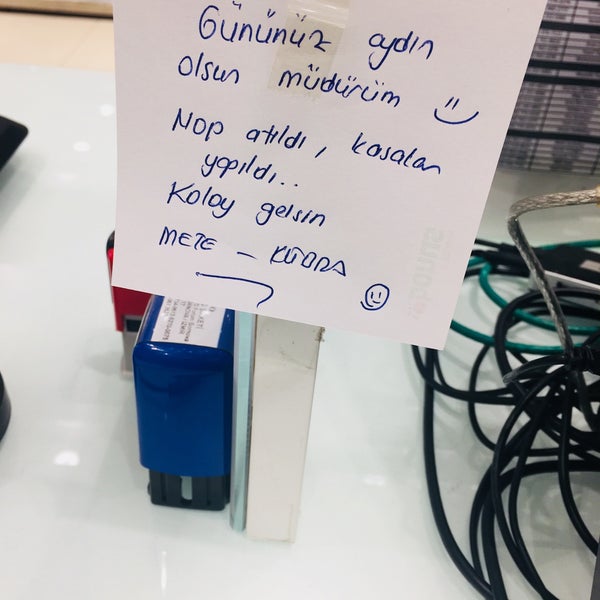 Gününüz aydın
olsun müdürüm
Mop atıldı, kasaları
yapıldı..
Kolay gelsin
METE – KÜBRA